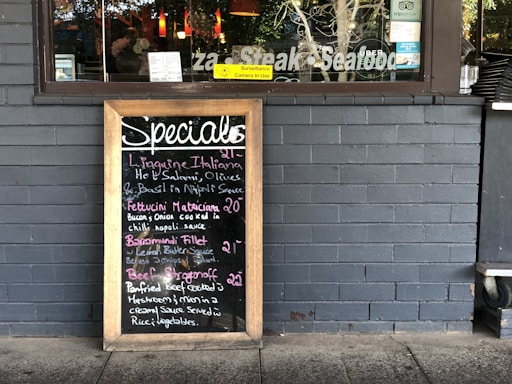 za • Steak • Seafood
Surveillance
Camera In Use
OPEN
Specials
Linguine Italiana 21-
Hot Salami, Olives
& Basil in Napoli Sauce
Fettucini Matriciana 20-
Bacon & Onion cooked in
chilli napoli sauce
Barramundi Fillet 21-
w Lemon Butter Sauce
Served
Beef Stroganoff 22-
Panfried Beef cooked in
Mushroom & onion in a
creamy Sauce Served w
Rice & vegetables.